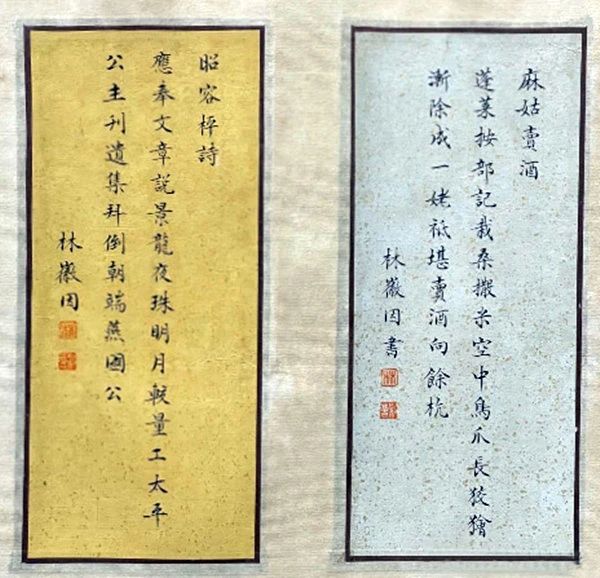 麻姑賣酒
蓬萊按部記栽桑撒米空中鳥爪長狡獪
漸除成一姥祗堪賣酒向餘杭
林徽因書
昭容枰詩
應奉文章說景龍夜珠明月較量工太平
公主刊遺集拜倒朝端燕國公
林徽因